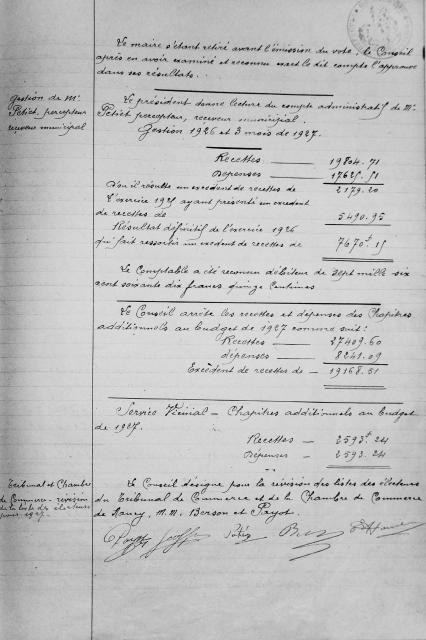 Le maire s'étant retiré avant l'émission du vote, le Conseil
après en avoir examiné et reconnu exact le dit compte l'approuve
dans ses résultats.
Gestion de Mr
Petiet, percepteur
receveur municipal
Le président donne lecture du compte administratif de Mr
Petiet percepteur, receveur municipal.
Gestion 1926 et 3 mois de 1927.
Recettes 19804.71
Dépenses 17625.51
D'où il résulte un excédent de recettes de 2179.20
L'exercice 1925 ayant présenté un excédent
de recettes de 5490.95
Résultat définitif de l'exercice 1926
qui fait ressortir un excédent de recettes de 7670f.15
Le Comptable a été reconnu débiteur de Sept mille six
cent soixante dix francs quinze Centimes
Le Conseil arrête les recettes et dépenses des Chapitres
additionnels au budget de 1927 comme suit:
Recettes 27409.60
dépenses 8241.09
Excédent de recettes de 19168.51
Service Vicinal — Chapitres additionnels au budget
de 1927.
Recettes — 2593f.24
Dépenses — 2593.24
Tribunal et Chambre
de Commerce - révision
de la liste des électeurs
pour 1927.
Le Conseil désigne pour la révision des listes des électeurs
du Tribunal de Commerce et de la Chambre de Commerce
de M.M. Berson et Payot.
Payot